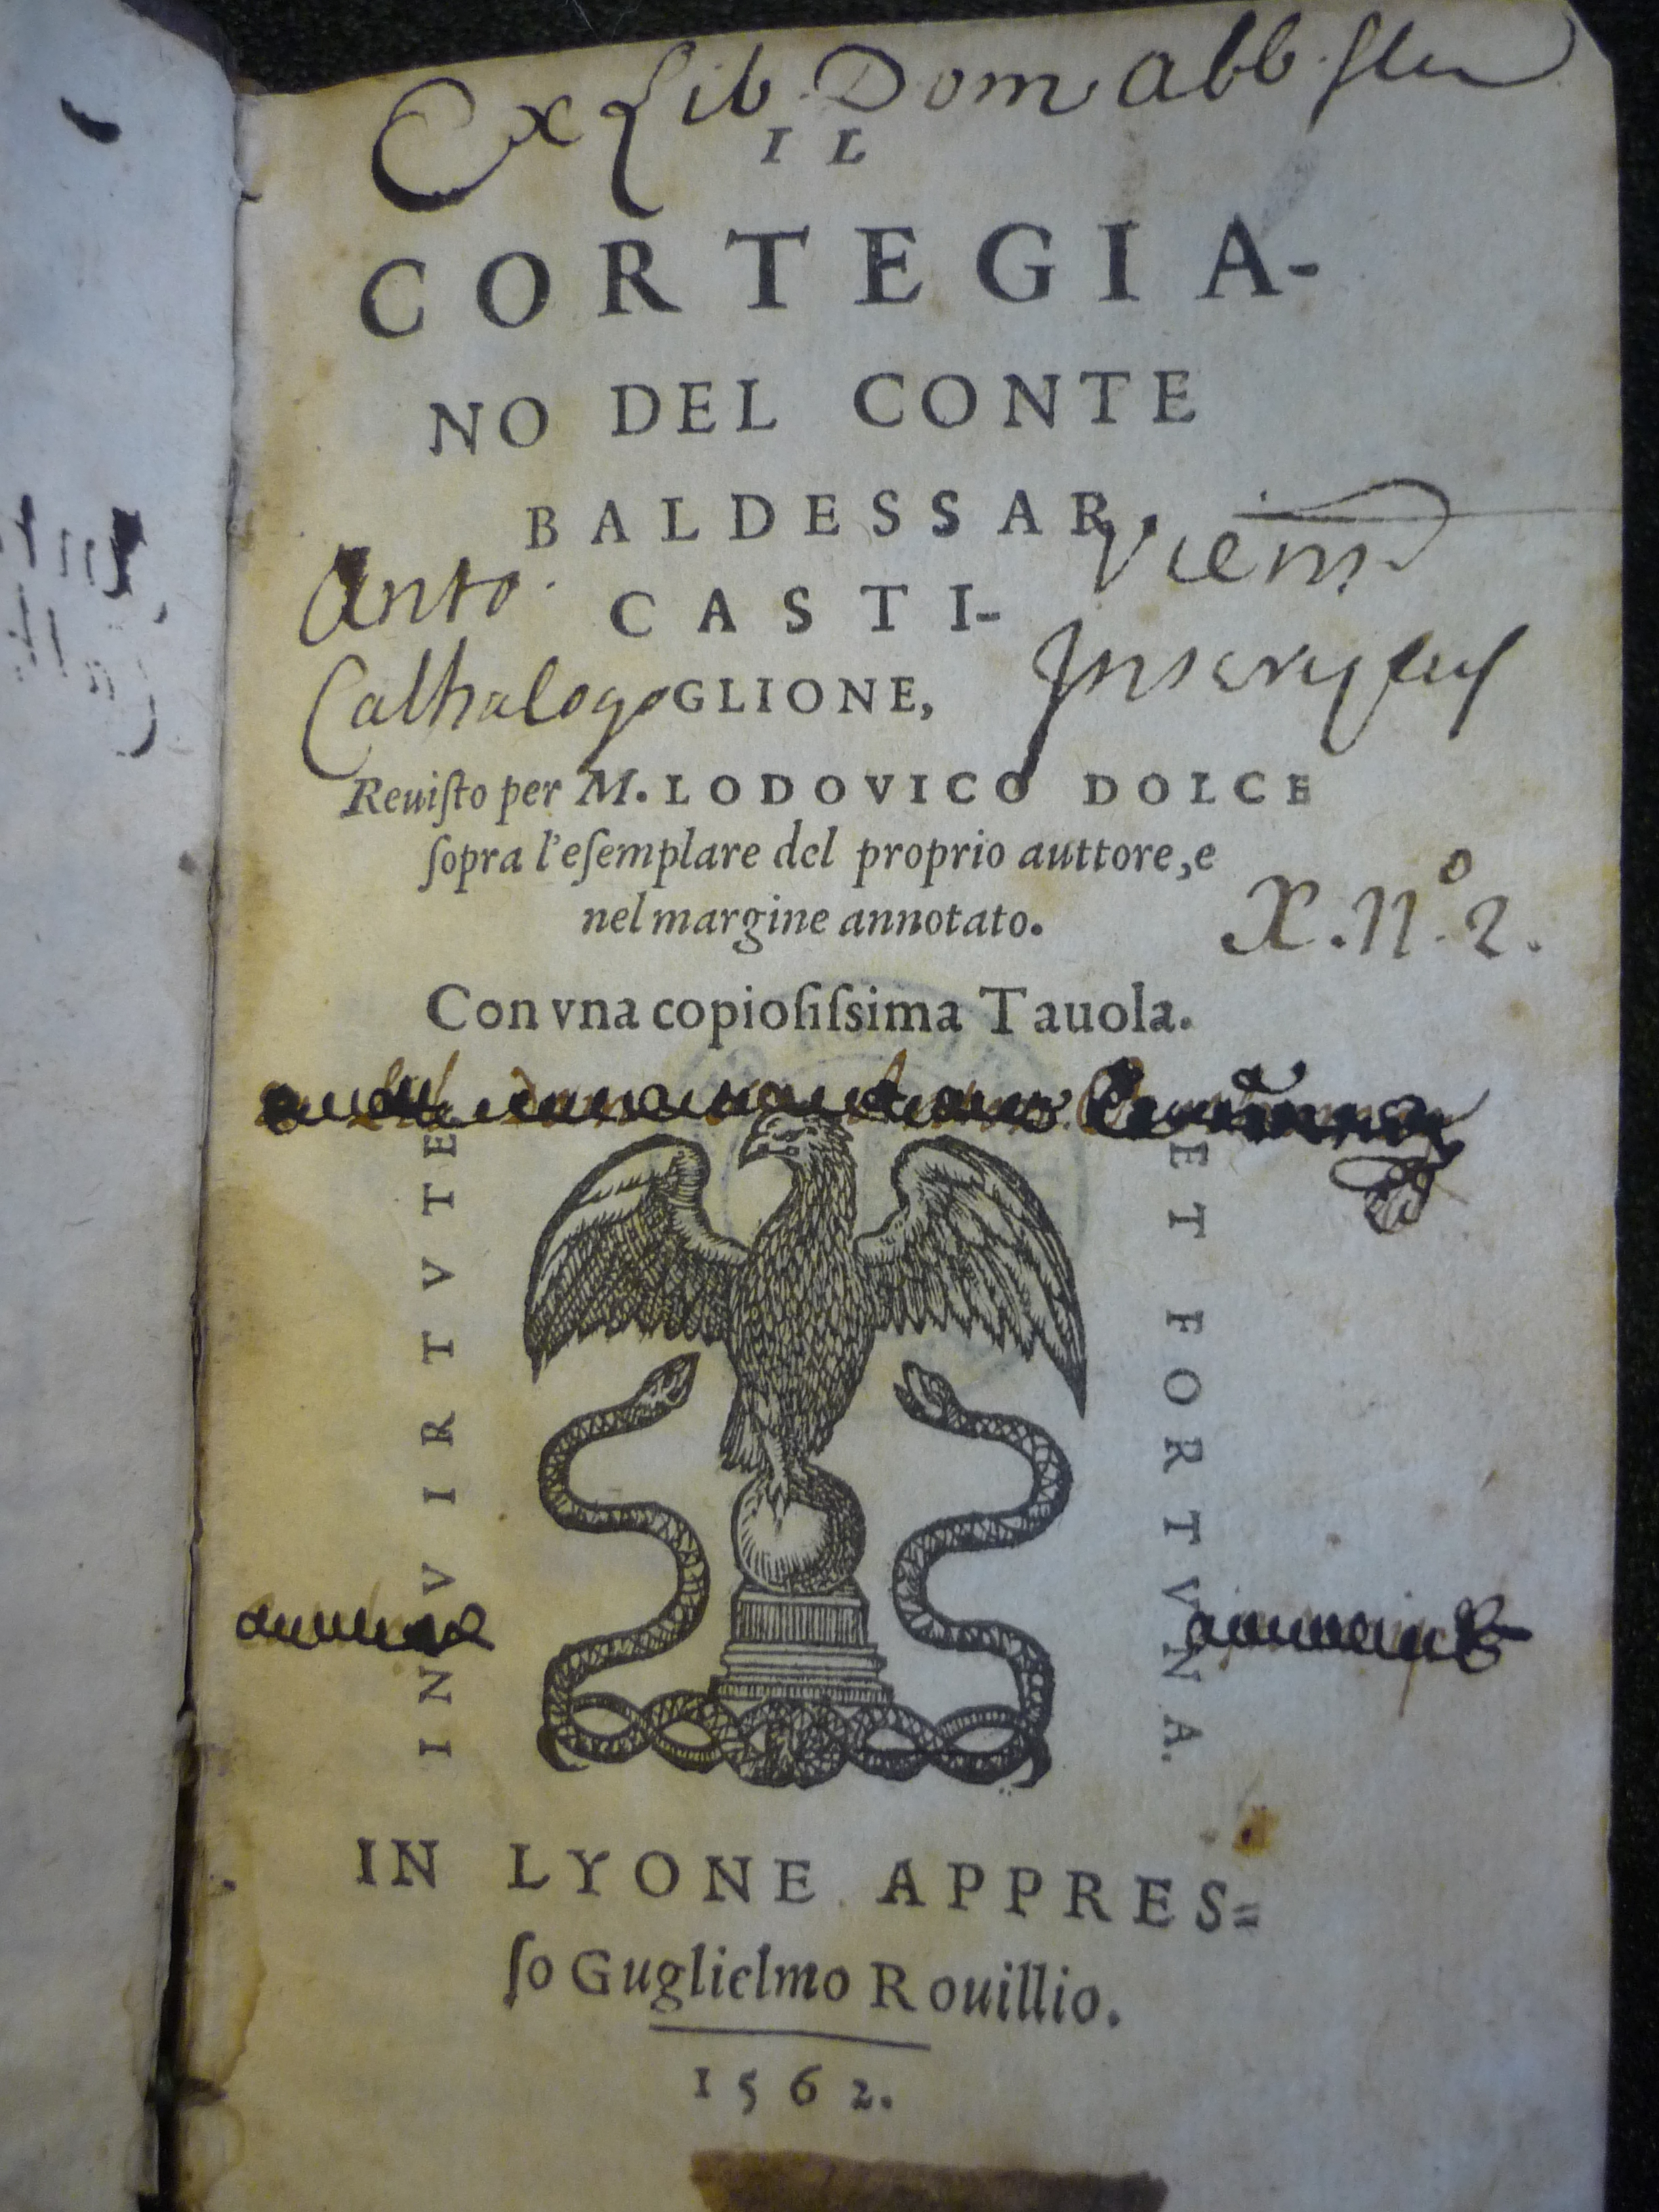 Ex Lib. Dom abb
IL
CORTEGIA-
NO DEL CONTE
BALDESSAR
Anto. CASTI-
Cathalogo GLIONE, Inscriptus
Reuiſto per M. LODOVICO DOLCE
ſopra l'eſemplare del proprio auttore, e
nel margine annotato.
X. n.º 2.
Con vna copioſiſsima Tauola.
IN VIRTVTE
ET FORTVNA.
IN LYONE APPRES=
ſo Guglielmo Rouillio.
1562.